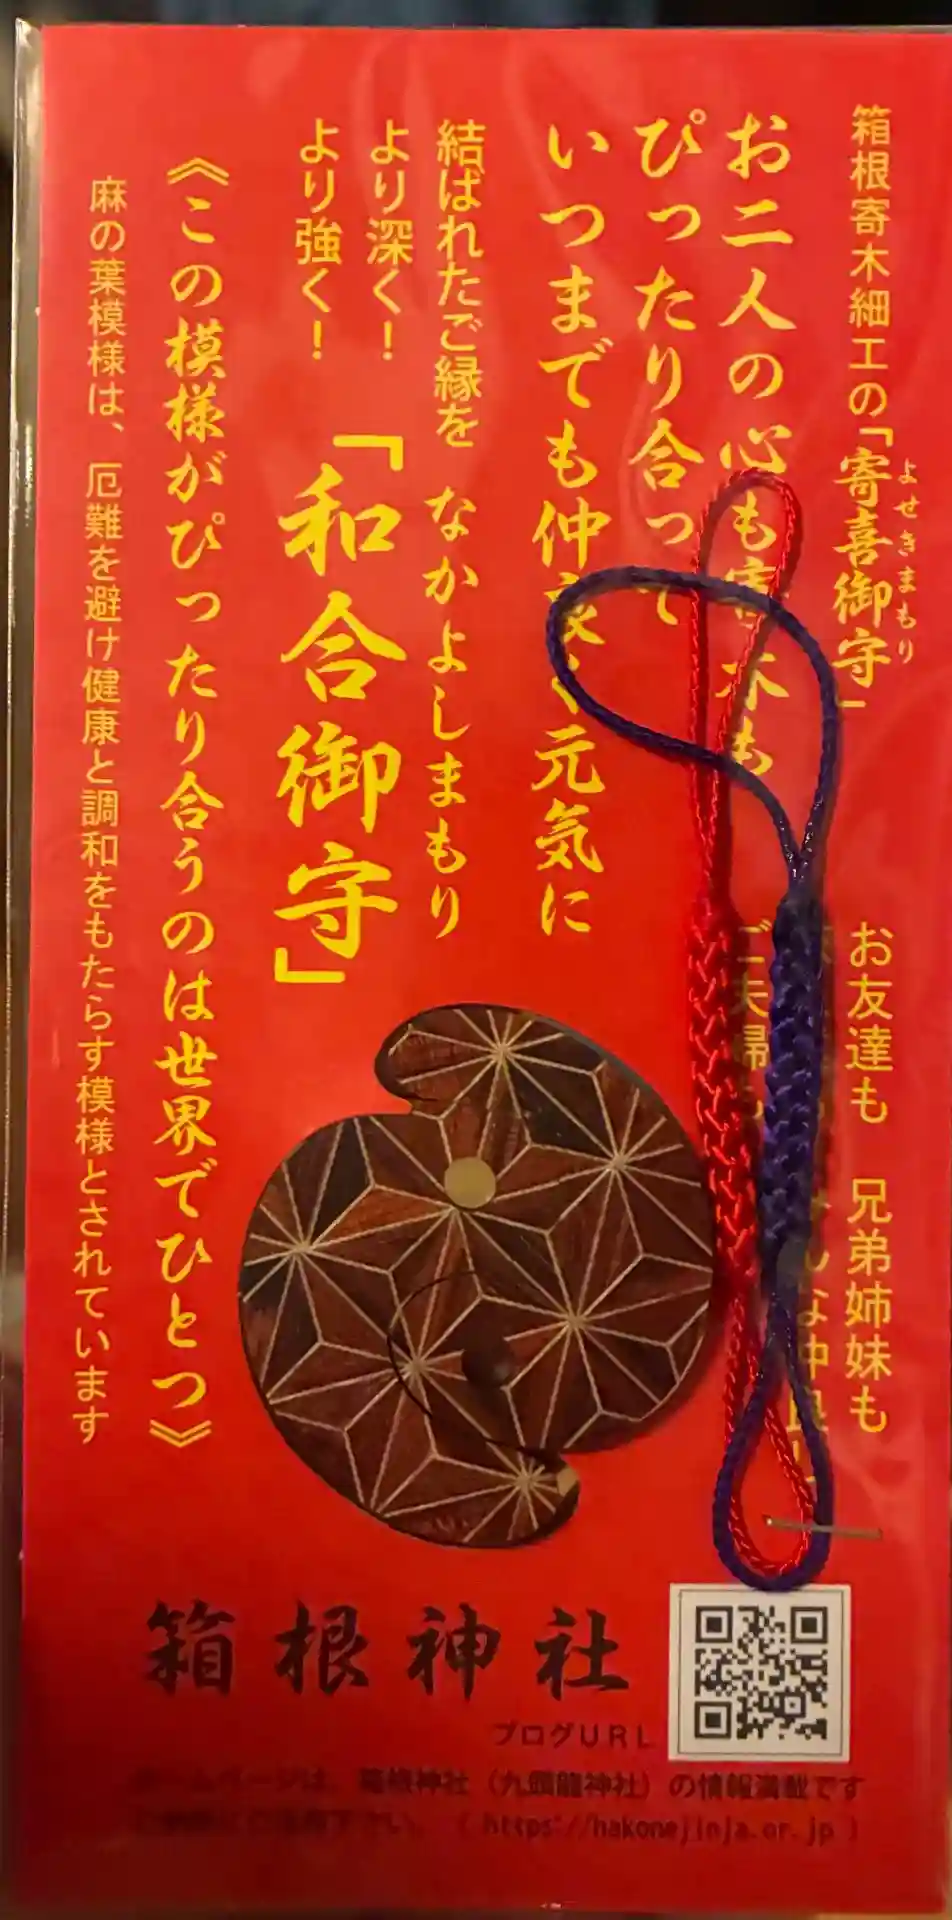 箱根寄木細工の「寄喜御守」
よせきまもり
お友達も 兄弟姉妹も
ご夫婦
お二人の心も
ぴったり合って
いつまでも仲良く元気に
結ばれたご縁を
より深く！
より強く！
なかよしまもり
「和合御守」
《この模様がぴったり合うのは世界でひとつ》
麻の葉模様は、厄難を避け健康と調和をもたらす模様とされています
箱根神社
ブログURL
ホームページは、箱根神社（九頭龍神社）の情報満載です
( https://hakonejinja.or.jp )